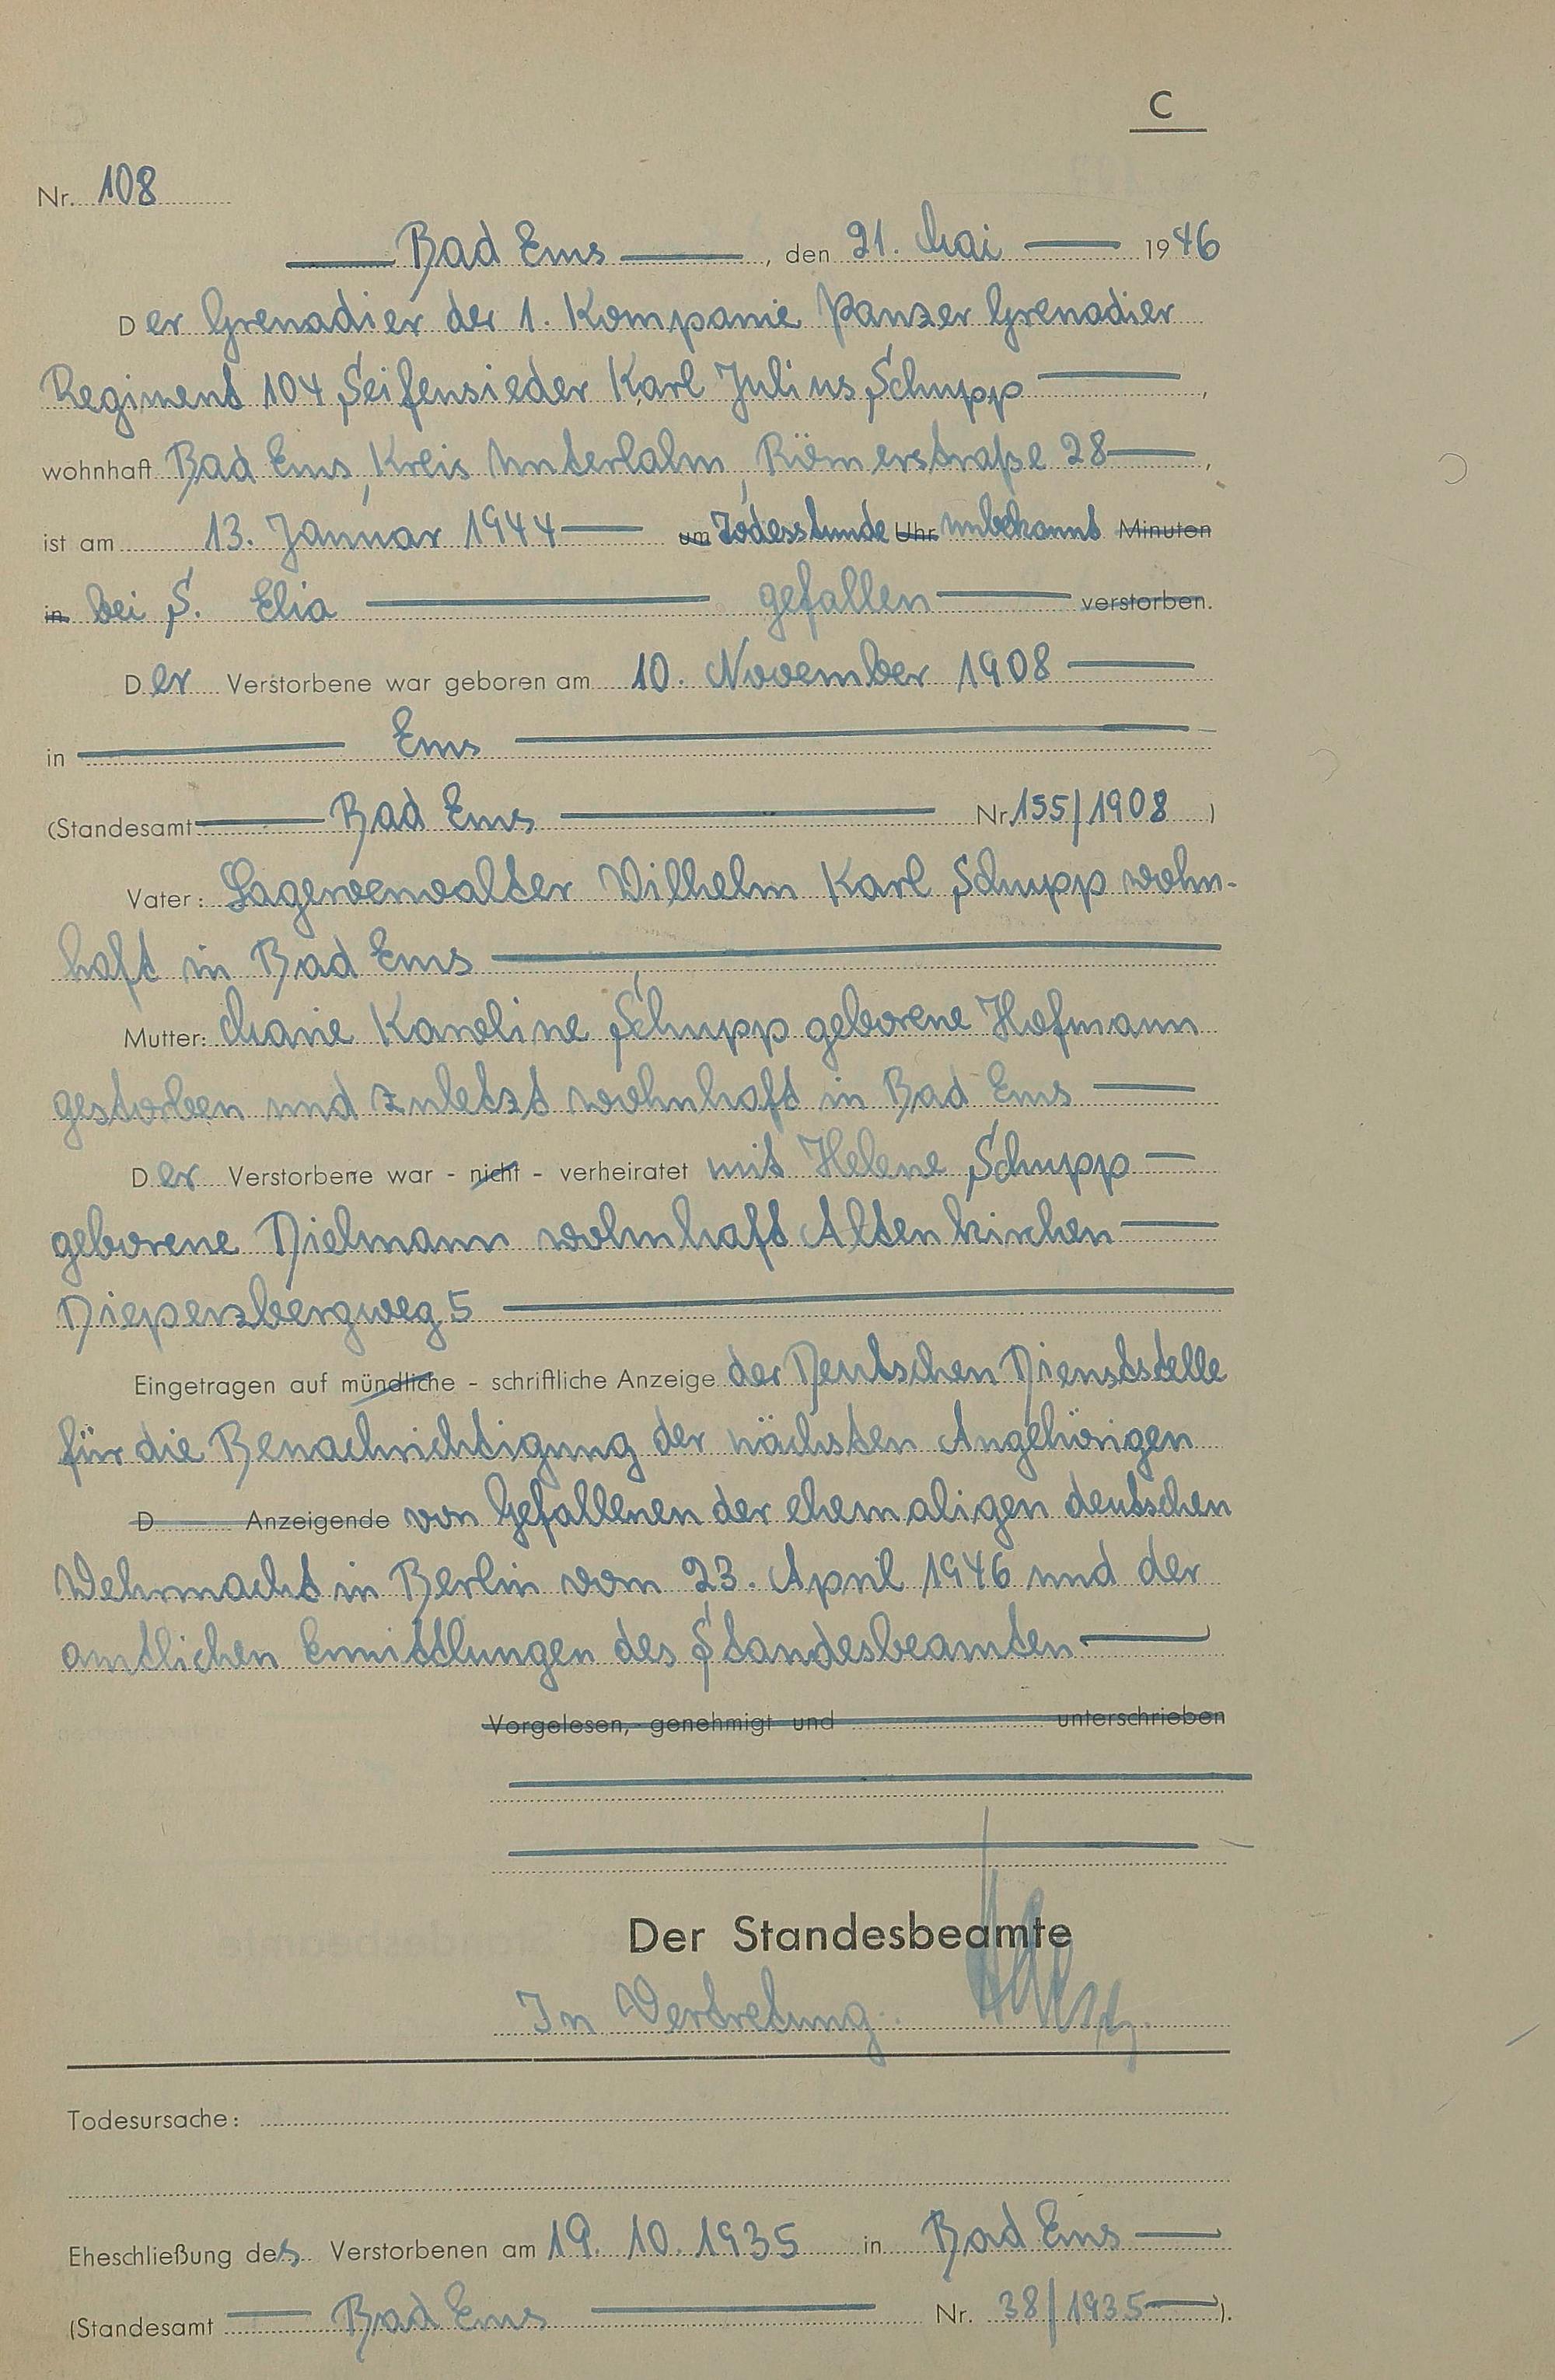 C
Nr. 108
Bad Ems, den 21. Mai 1946
Der Grenadier der 1. Kompanie Panzer Grenadier
Regiment 104 Seifensieder Karl Julius Schupp,
wohnhaft Bad Ems, Kreis Unterlahn, Römerstraße 28,
ist am 13. Januar 1944 um Todesstunde Uhr unbekannt Minuten
in bei S. Elia gefallen verstorben.
Der Verstorbene war geboren am 10. November 1908
in Ems
(Standesamt Bad Ems Nr. 155/1908)
Vater: Lagerverwalter Wilhelm Karl Schupp wohn-
haft in Bad Ems
Mutter: Marie Karoline Schupp geborene Hofmann
gestorben und zuletzt wohnhaft in Bad Ems
Der Verstorbene war - nicht - verheiratet mit Helene Schupp
geborene Dielmann wohnhaft Altenkirchen
Dieperzbergweg 5
Eingetragen auf mündliche - schriftliche Anzeige der Deutschen Dienststelle
für die Benachrichtigung der nächsten Angehörigen
D Anzeigende von Gefallenen der ehemaligen deutschen
Wehrmacht in Berlin vom 23. April 1946 und der
amtlichen Ermittlungen des Standesbeamten
Vorgelesen, genehmigt und unterschrieben
Der Standesbeamte
In Vertretung:
Todesursache:
Eheschließung des Verstorbenen am 19. 10. 1935 in Bad Ems
(Standesamt Bad Ems Nr. 38/1935).